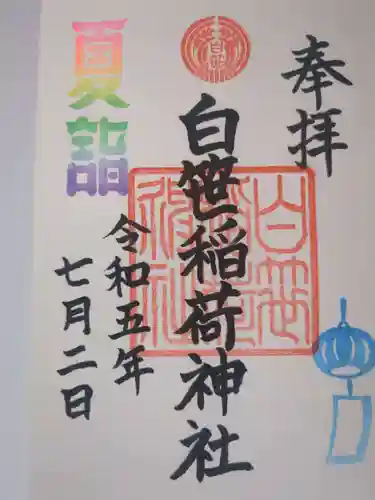 奉拝
白笹稲荷神社
令和五年
七月二日
夏詣
白笹